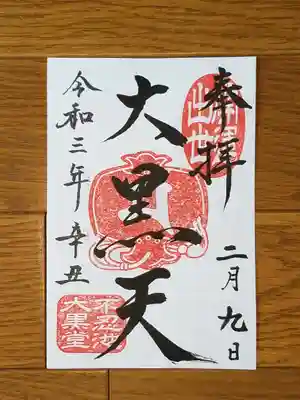 奉拝
二月九日
大黒天
令和三年辛丑
不忍池
大黒堂